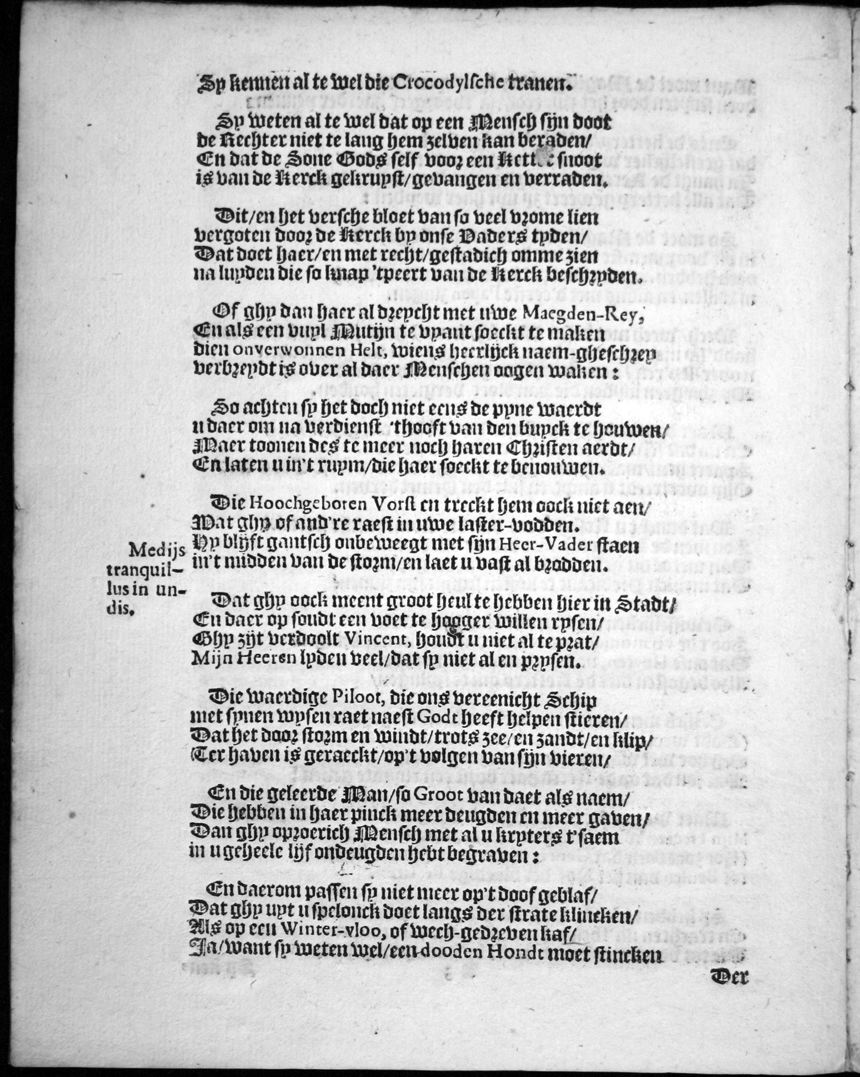 Sy kennen al te wel die Crocodylsche tranen.
Sy weten al te wel dat op een Mensch sijn doot
de Rechter niet te lang hem zelven kan beraden/
En dat de Sone Gods self voor een snoot
is van de Kerck gekruyst/gevangen en verraden.
Dit/en het versche bloet van so veel vrome lien
vergoten door de Kerck by onse Vaders tyden/
Dat doet haer/en met recht/gestadich omme zien
na luyden die so knap 'tpeert van de Kerck beschryden.
Of ghy dan haer al dreycht met uwe Maegden-Rey,
En als een vuyl Mutijn te vyant soeckt te maken
dien onverwonnen Helt, wiens heerlijck naem-gheschrey
verbreydt is over al daer Menschen oogen waken:
So achten sy het doch niet eens de pyne waerdt
u daer om na verdienst 'thooft van den buyck te houwen/
Maer toonen des te meer noch haren Christen aerdt/
En laten u in't ruym/die haer soeckt te benouwen.
Die Hoochgeboren Vorst en treckt hem oock niet aen/
Wat ghy of and're raest in uwe laster-vodden.
Hy blijft gantsch onbeweegt met sijn Heer-Vader staen
in't midden van de storm/en laet u vast al brodden.
Medijs
tranquil-
lus in un-
dis.
Dat ghy oock meent groot heul te hebben hier in Stadt/
En daer op soudt een voet te hooger willen rysen/
Ghy zijt verdoolt Vincent, houdt u niet al te prat/
Mijn Heeren lyden veel/dat sy niet al en prysen.
Die waerdige Piloot, die ons vereenicht Schip
met synen wysen raet naest Godt heeft helpen stieren/
Dat het door storm en windt/trots zee/en zandt/en klip/
Ter haven is geraeckt/op't volgen van sijn vieren/
En die geleerde Man/so Groot van daet als naem/
Die hebben in haer pinck meer deugden en meer gaven/
Dan ghy oproerich Mensch met al u kryters t'saem
in u geheele lijf ondeugden hebt begraven:
En daerom passen sy niet meer op't doof geblaf/
Dat ghy uyt u spelonck doet langs der strate klincken/
Als op een Winter-vloo, of wech-gedreven kaf/
Ja/want sy weten wel/een dooden Hondt moet stincken
Der